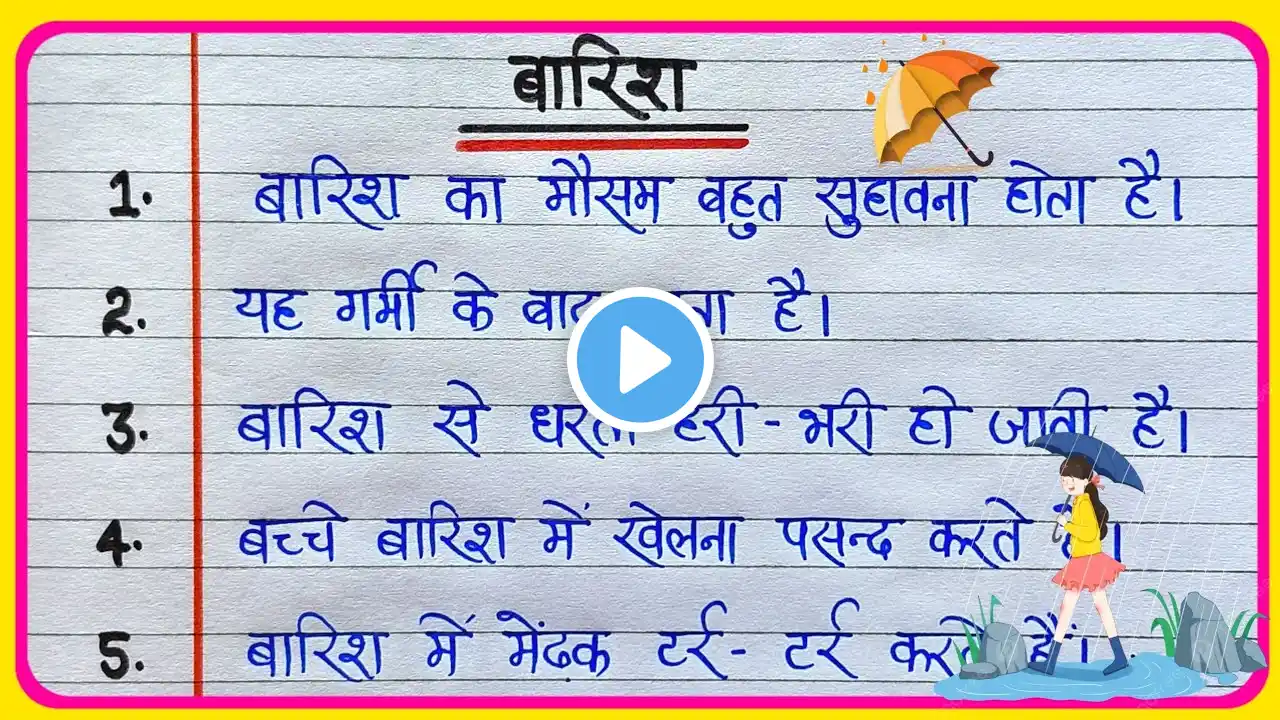 बारिश
1. बारिश का मौसम बहुत सुहावना होता है।
2. यह गर्मी के बाद है।
3. बारिश से धरती हरी-भरी हो जाती है।
4. बच्चे बारिश में खेलना पसन्द करते हैं।
5. बारिश में मेंढक टर्र-टर्र करते हैं।